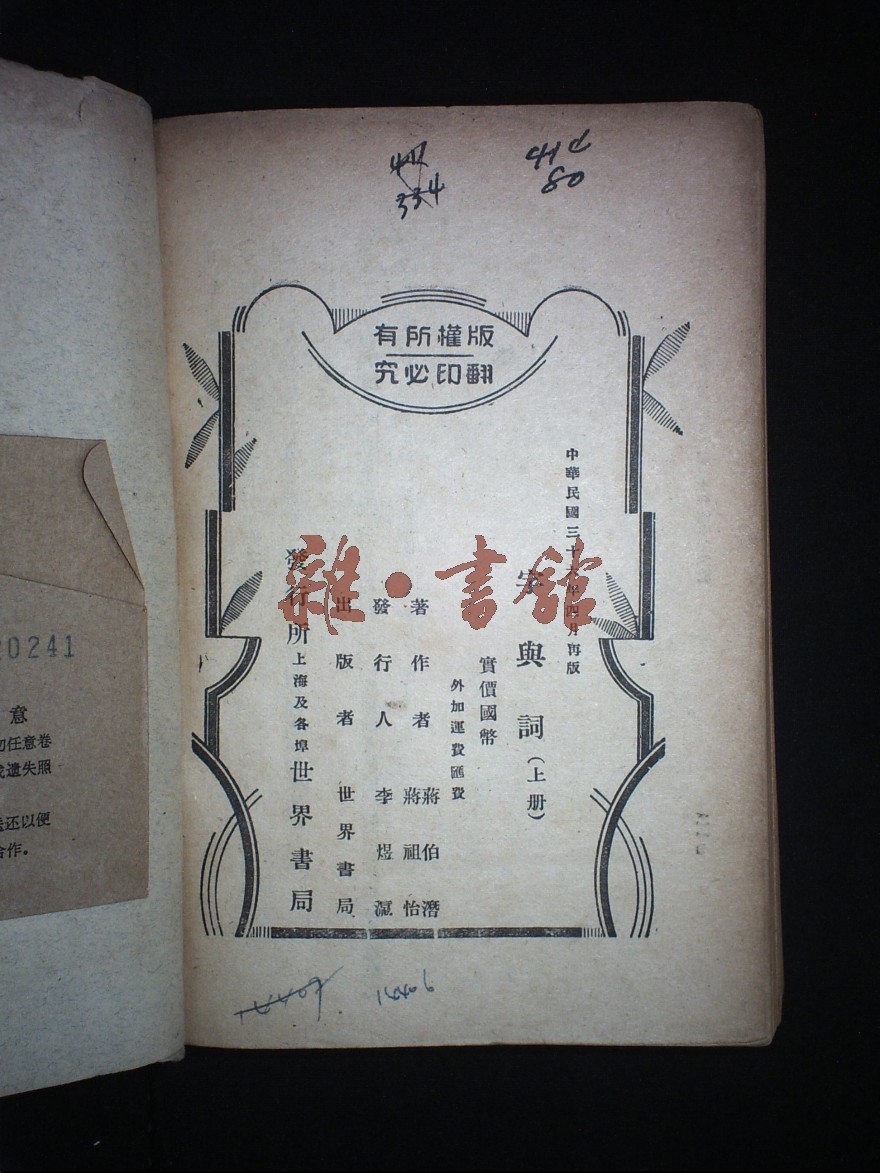 414
80
334
版權所有
翻印必究
中華民國三十六年四月再版
字與詞(上册)
實價國幣
外加運費匯費
著作者 蔣伯潛
蔣祖怡
發行人 李煜瀛
出版者 世界書局
發行所 上海及各埠 世界書局
雜·書館
20241
意
勿任意卷
遺失照
还以便
合作。